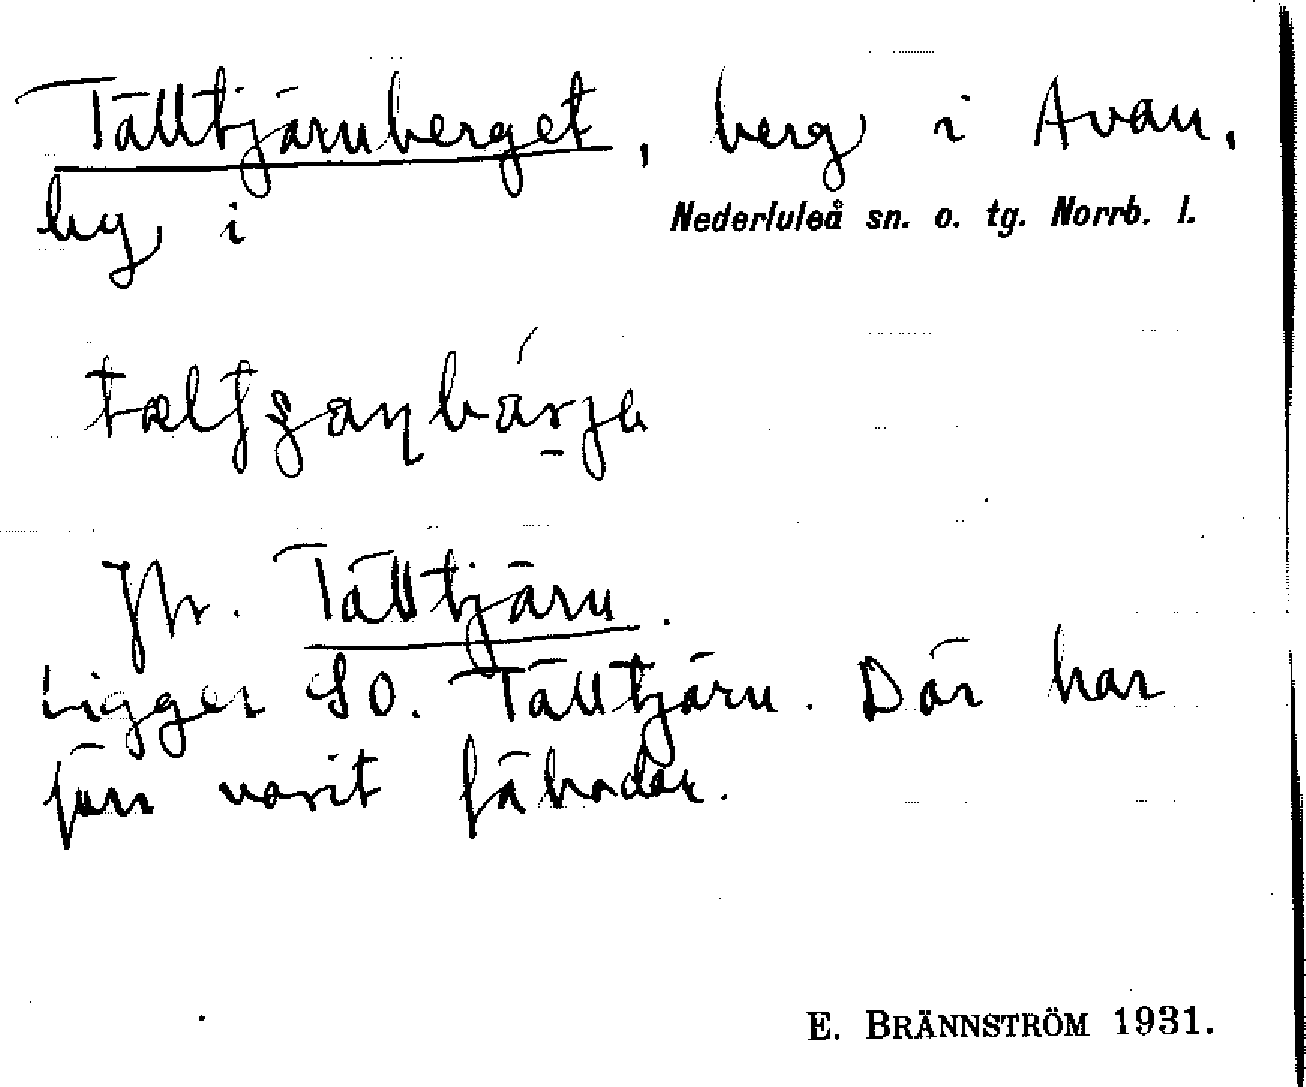 Tälltjärnberget, berg i Avan,
by i Nederluleå sn. o. tg. Norrb. l.
Jfr. Tälltjärn.
Ligger SO. Tälltjärn. Där har
förr varit fäbodar.
E. BRÄNNSTRÖM 1931.